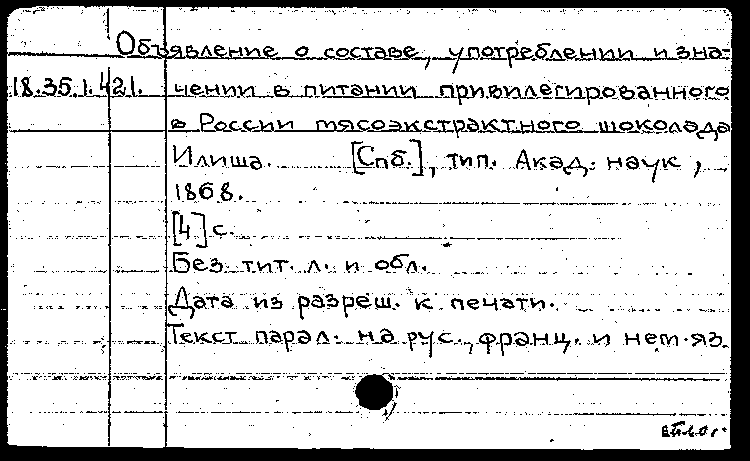 Объявление о составе, употреблении и зна-
18.35.1.421. чении в питании привилегированного
в России мясоэкстрактного шоколада
Илиша. [Спб.], тип. Акад. наук,
1868.
[4] с.
Без тит. л. и обл.
Дата из разреш. к печати.
Текст парал. на рус., франц. и нем. яз.